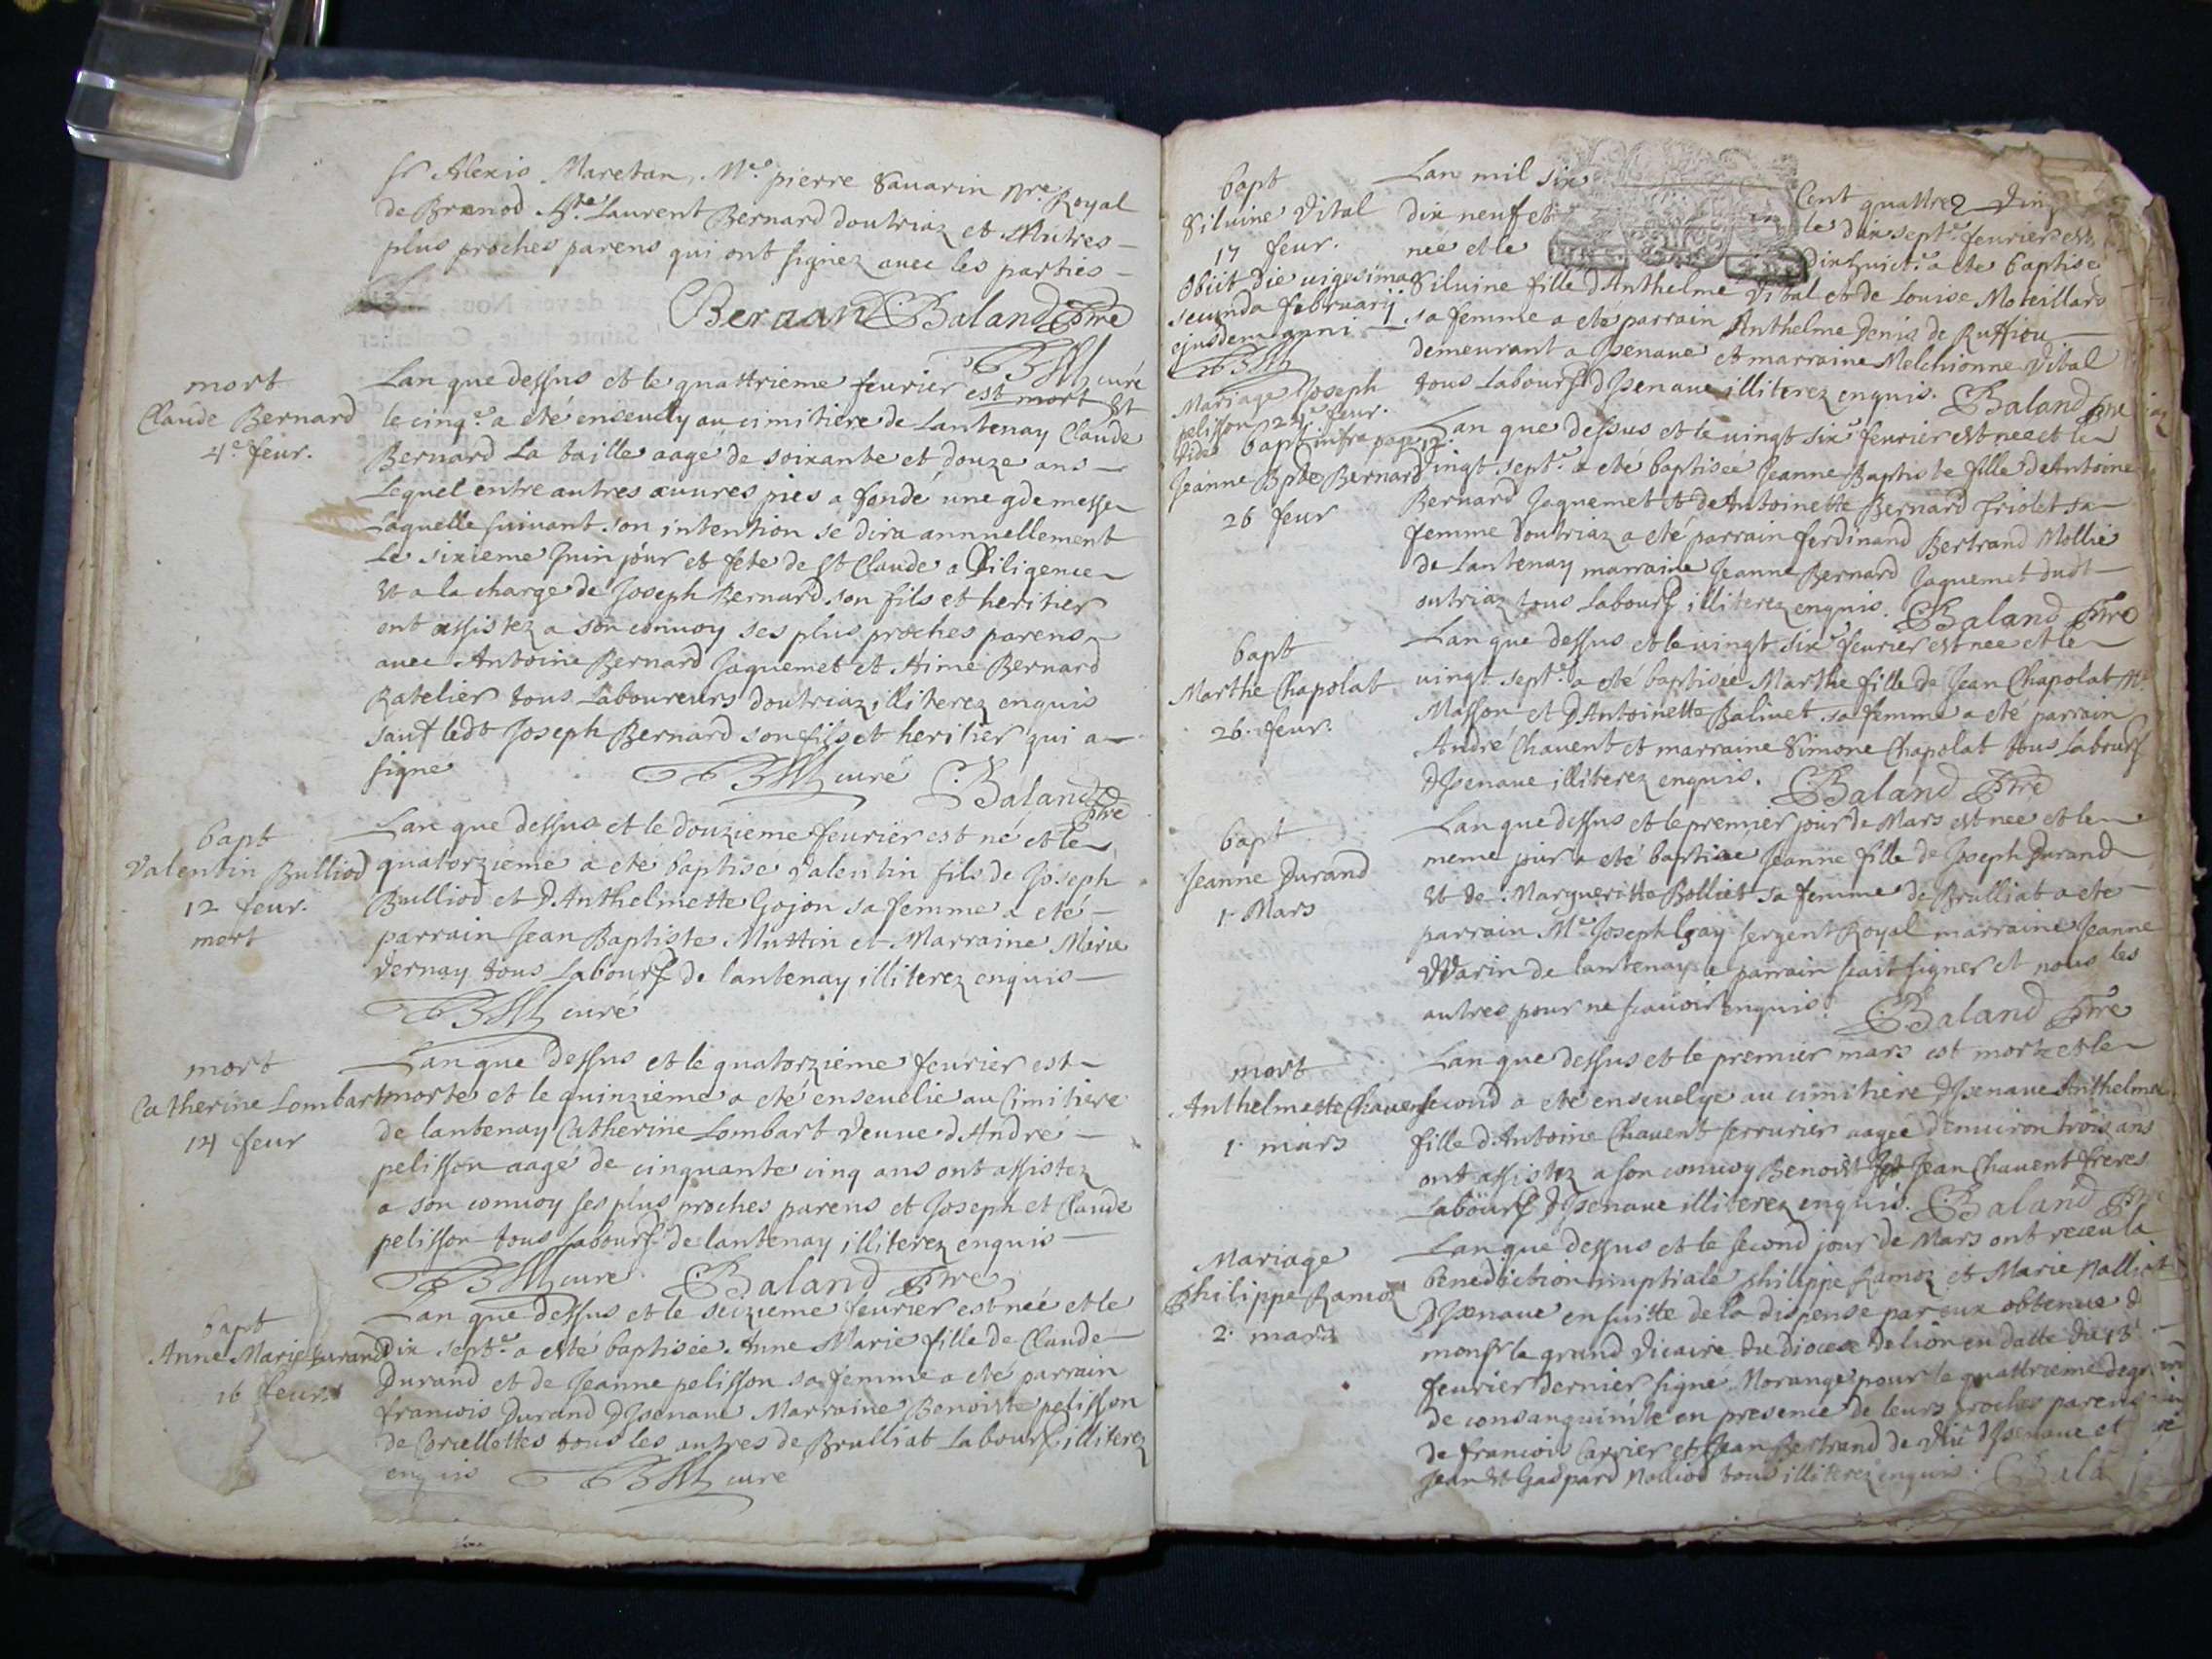 Sr Alexis Maretan, Me. pierre Sauarin Nre. Royal
de Brenod Hte. Laurent Bernard doutriaz et Autres
plus proches parens qui ont signez auec les parties
Bernard CBaland Ptre
curé
mort
Claude Bernard
4e. feur.
Lan que dessus et le quattrieme feurier est mort et
le cinqe. a eté enseuely au cimitiere de Lantenay Claude
Bernard La taille aagé de soixante et douze ans
Lequel entre autres œuures pies a fondé une gde messe
Laquelle suiuant son intention se dira annuellement
Le sixieme Juin jour et fete de St Claude a Diligence
et a la charge de Joseph Bernard son fils et heritier
ont assistez a son conuoy ses plus proches parens
auec Antoine Bernard Jaquemet et Aimé Bernard
Ratelier tous Laboureurs doutriaz illiterez enquis
sauf ledt Joseph Bernard son fils et heritier qui a
signe
curé CBaland Ptre
bapt
Valentin Bulliod
12 feur.
mort
Lan que dessus et le douzieme feurier est né et le
quatorzieme a eté baptise Valentin fils de Joseph
Bulliod et d'Anthelmette Gojon sa femme a eté
parrain Jean Baptiste Muttin et Marraine
Vernay tous Labours de lantenay illiterez enquis
curé
mort
Catherine Lombart
14 feur
Lan que dessus et le quatorzieme feurier est
morte et le quinzieme a eté enseuelie au Cimitiere
de lantenay Catherine Lombart Veuue d'André
pelisson aagé de cinquante cinq ans ont assistez
a son conuoy ses plus proches parens et Joseph et Claude
pelisson tous Labours de lantenay illiterez enquis
curé CBaland Ptre
bapt
Anne Marie Durand
16 feur
Lan que dessus et le seizieme feurier est née et le
dix septe. a eté baptisée Anne Marie fille de Claude
Durand et de Jeanne pelisson sa femme a eté parrain
francois Durand DJsenaue Marraine Benoiste pelisson
de Corcellettes tous les autres de Brulliat Labours illiterez
enquis curé
bapt
Siluine Vital
17 feur.
Obiit die uigesima
secunda februarij
ejusdem anni
Lan mil six Cent quattre Vin
dix neuf et le dix septe. feurier est
née et le dixhuicte. a eté baptise
Siluine fille d'Anthelme Vital et de Louise Moteillard
sa femme a eté parrain Anthelme Denis de Ruffieu
demeurant a Jsenaue et marraine Melchionne Vital
tous Labours DJsenaue illiterez enquis. CBaland Ptre
Mariage Joseph
pelisson 24e feur.
Vide infra page
bapt
Jeanne Bpte Bernard
26 feur
Lan que dessus et le uingt sixe. feurier est nee et le
Vingt septe. a eté baptiseé Jeanne Baptiste fille de Antoine
Bernard Jaquemet et de Antoinette Bernard friolet sa
femme doutriaz a eté parrain ferdinand Bertrand Mollie
de Lantenay marraine Jeanne Bernard Jaquemet dudt
outriaz tous Labours illiterez enquis. CBaland Ptre
bapt
Marthe Chapolat
26. feur.
Lan que dessus et le uingt sixe feurier est nee et le
uingt septe. a eté baptiseé Marthe fille de Jean Chapolat Me.
Masson et D'Antoinette Baliuet sa femme a eté parrain
André Chauent et marraine Simone Chapolat tous Labours
DJsenaue illiterez enquis. CBaland Ptre
bapt
Jeanne Durand
1. Mars
Lan que dessus et le premier jour de Mars est nee et le
meme jour a eté baptisee Jeanne fille de Joseph Durand
et de Margueritte Bolliet sa femme de Brulliat a ete
parrain Me. Joseph Gay sergent Royal marraine Jeanne
Warin de lantenay le parrain scait signer et nous les
autres pour ne scauoir enquis. CBaland Ptre
mort
Anthelmette Chauent
1. mars
Lan que dessus et le premier mars est morte et le
second a eté enseuelye au cimitiere DJsenaue Anthelme
fille d'Antoine Chauent serrurier aageé d'enuiron trois ans
ont assistez a son conuoy Benoist et Jean Chauent freres
Labours DJsenaue illiterez enquis. CBaland Ptre
Mariage
Philippe Ramoz
2. mars
Lan que dessus et le second jour de Mars ont receu la
benediction nuptiale philippe Ramoz et Marie Nalliod
DJsenaue en suitte de la dispense par eux obtenue d
monsr le grand Vicaire du diocese de lion en datte du 18
feurier dernier signé Morange pour le quattrieme degr
de consanguinité en presence de leurs proches parens
de francois Carrier et Jean Bertrand de DJsenaue et
Jean et Gaspard Nalliod tous illiterez enquis. CBala